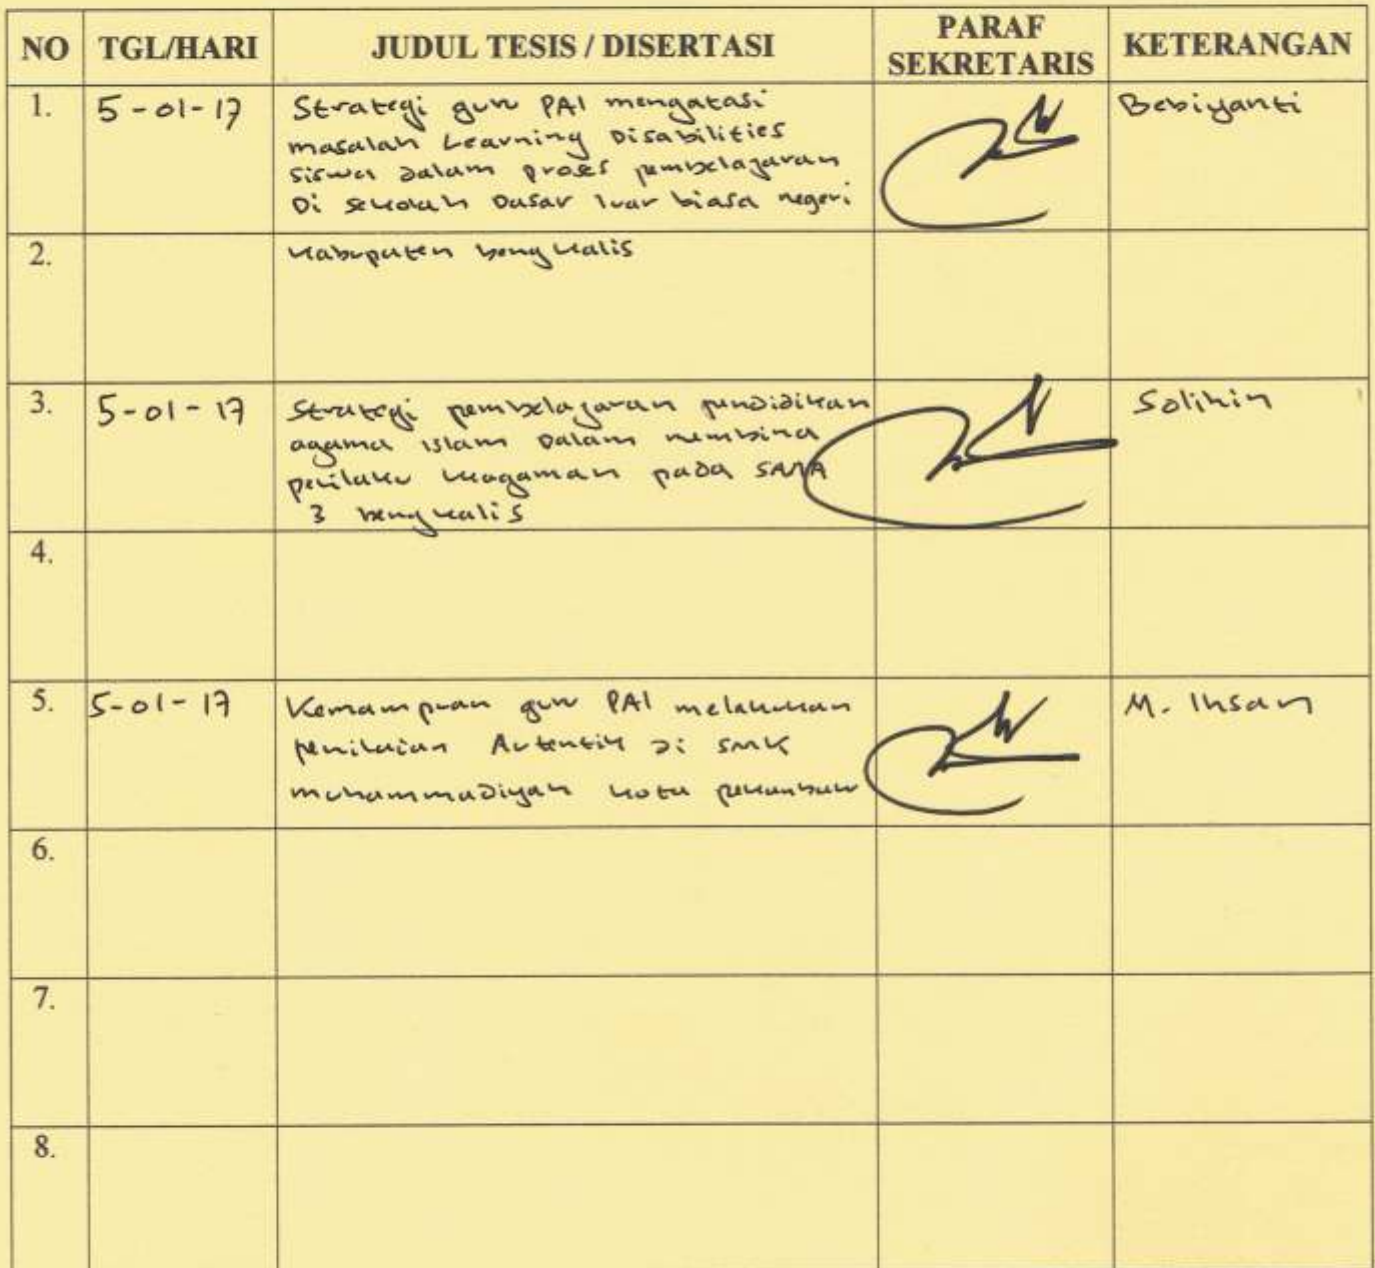 NO TGL/HARI JUDUL TESIS / DISERTASI PARAF SEKRETARIS KETERANGAN
1. 5-01-17 Strategi guru PAI mengatasi Bebiyanti
masalah Learning Disabilities
siswa dalam proses pembelajaran
Di sekolah Dasar luar biasa negeri
2. kabupaten bengkalis
3. 5-01-17 Strategi pembelajaran pendidikan Solihin
agama islam Dalam membina
perilaku keagaman pada SMA
3 bengkalis
4.
5. 5-01-17 Kemampuan guru PAI melakukan M. Ihsan
penilaian Autentik di SMK
muhammadiyah kota pekanbaru
6.
7.
8.